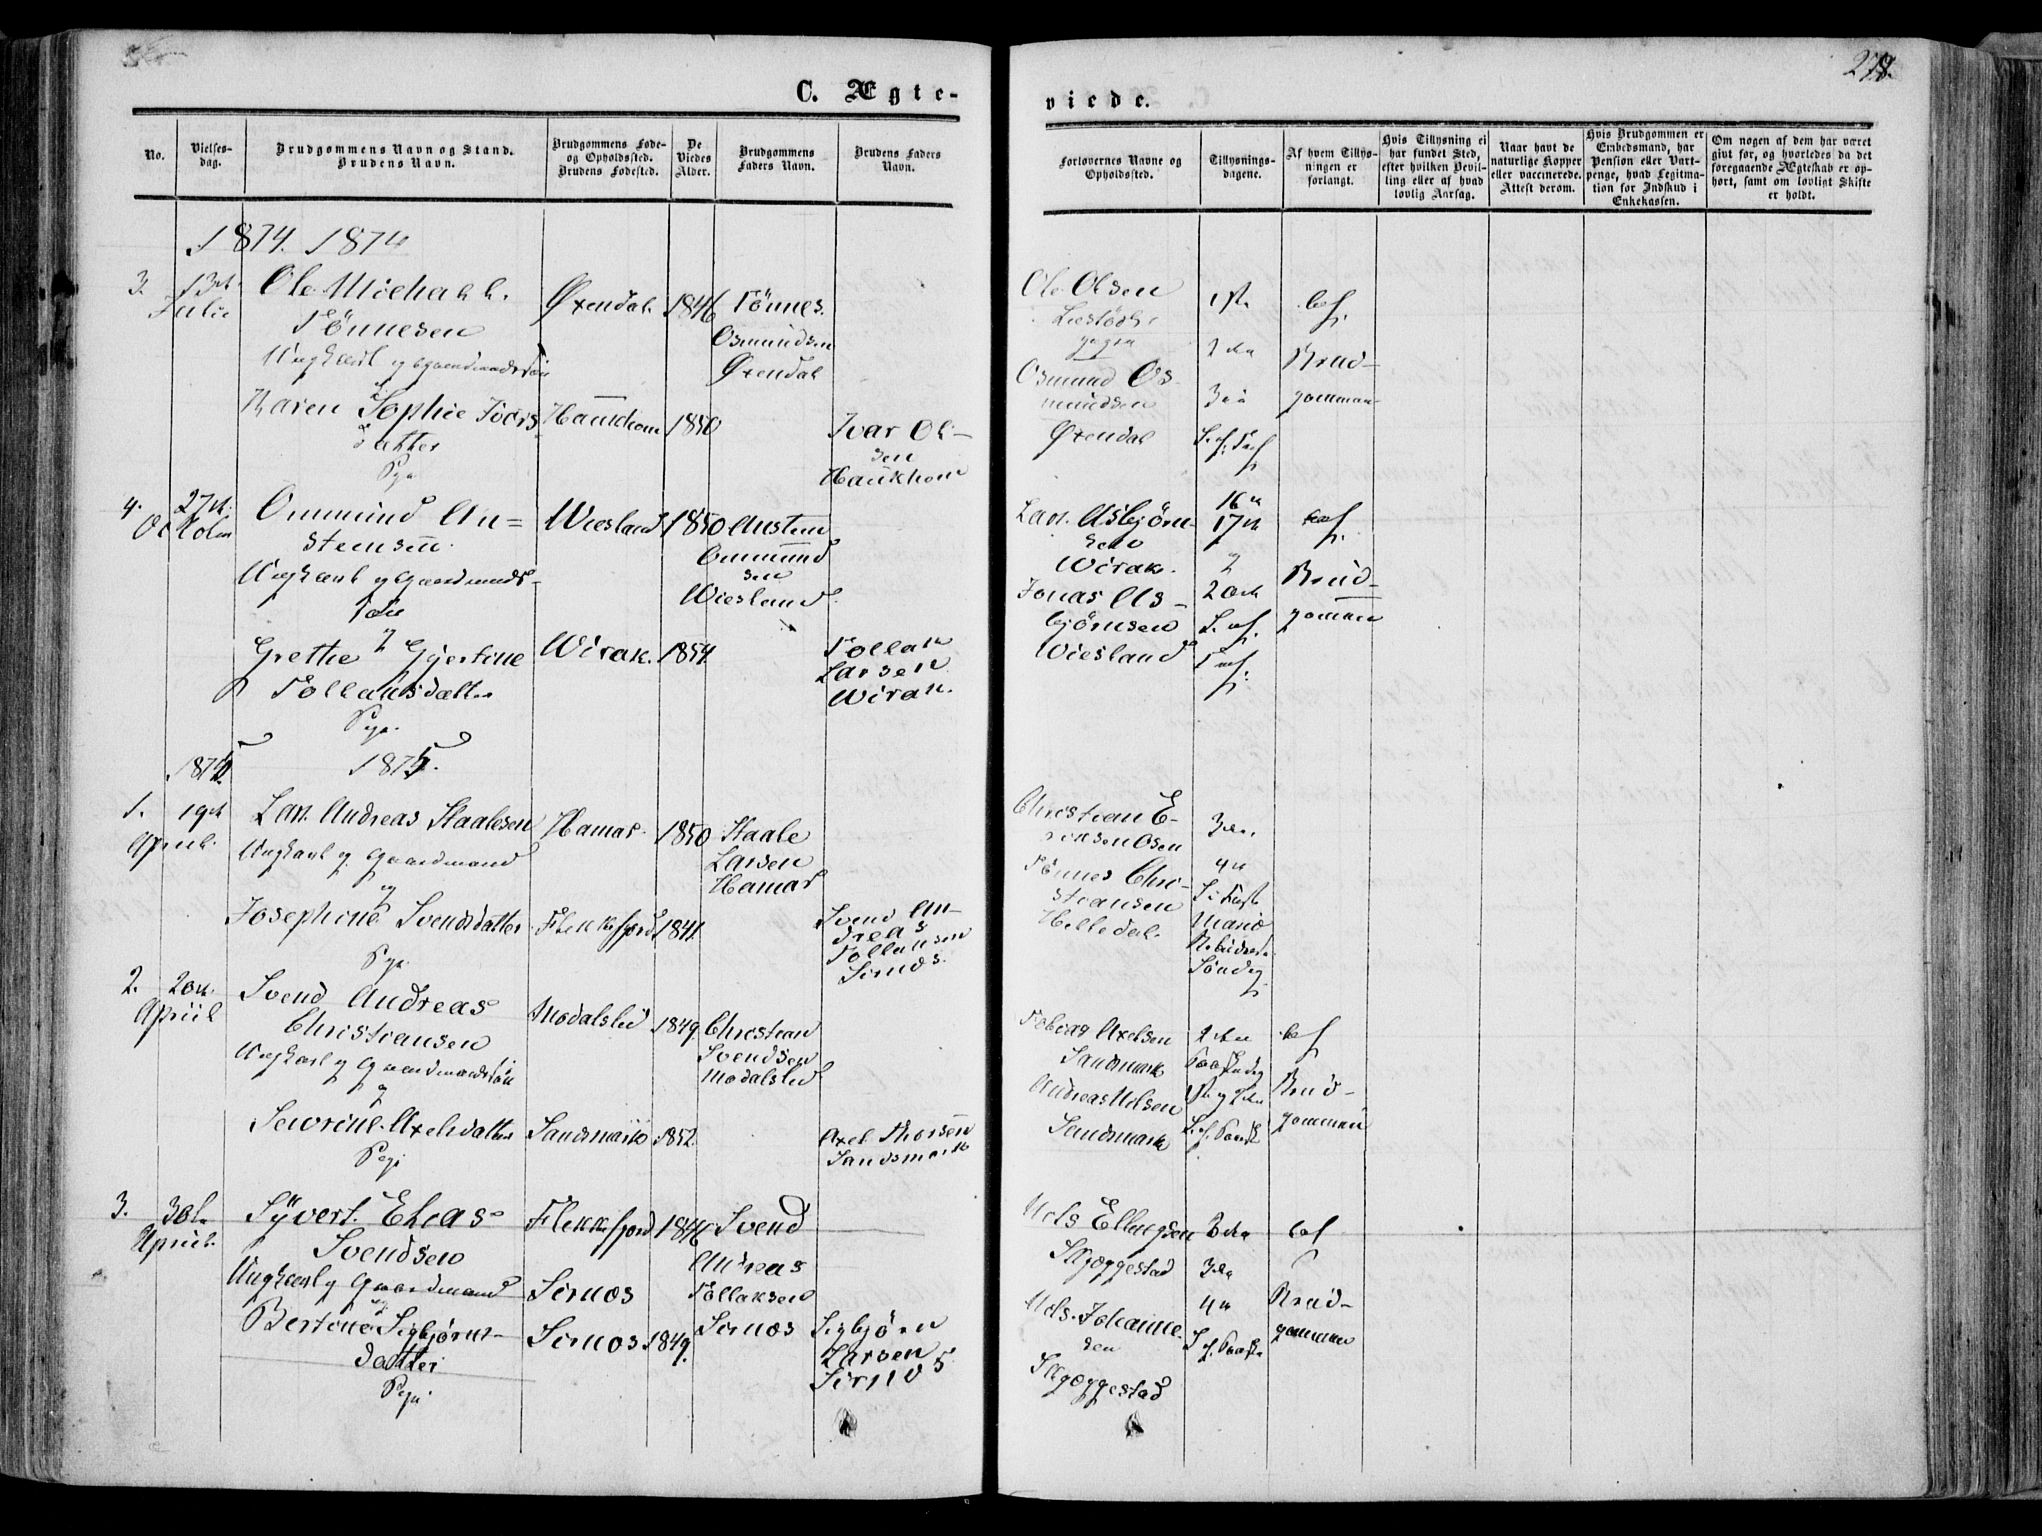 278.
C. Ægte-
viede.
No.
Vielses-
dag.
Brudgommens Navn og Stand.
Brudens Navn.
Brudgommens Føde-
og Opholdssted.
Brudens Fødested.
De
Viedes
Alder.
Brudgommens
Faders Navn.
Brudens Faders
Navn.
Forlovernes Navne og
Opholdssted.
Tillysnings-
dagene.
Af hvem Tillys-
ningen er
forlangt.
Hvis Tillysning ei
har fundet Sted,
efter hvilken Bevil-
ling eller af hvad
lovlig Aarsag.
Naar havt de
naturlige Kopper
eller vaccinerede.
Attest derom.
Hvis Brudgommen er
Embedsmand, har
Pension eller Vart-
penge, hvad Legitima-
tion for Indskud i
Enkekassen.
Om nogen af dem har været
givt før, og hvorledes da det
foregaaende Ægteskab er op-
hørt, samt om lovligt Skifte
er holdt.
1874. 1874
3.
13de
Julie
Ole Michael
Tönnesen
Ungkarl og Gaardmandssön
Karen Sophie Ivars
datter
Pge
Øxendal
Haukhom
1846
1850
Tönnes
Osmundsen
Øxendal
Ivar Ol-
sen
Haukhom
Ole Olsen
Osmund Os-
mundsen
Øxendal
1ste
2den
3die
S. ef. Tref
Brud-
gommen
4.
27de
Octobr
Ommund Au-
stensen
Ungkarl og Gaardmands-
sön
og
Grethe Gjertine
Tollaksdatter
Pge.
Wiesland
Wirak.
1850
1854
Austen
Ommund
sen
Wiesland
Tollak
Larsen
Wirak.
Lars Asbjörn-
sen
Wirak.
Jonas As-
björnsen
Wiesland
16de
17de
og
20de
S. ef.
Tref.
Brud-
gommen
1875
1875.
1.
19de
April
Lars Andreas Staalesen
Ungkarl og Gaardmand
og
Josephine Svendsdatter
Pge
Hamar
Flekkefjord
1850
1841.
Staale
Larsen
Hamar
Svend An-
dreas
Tollaksen
Sirnes.
Christian E-
riksen Osen
Tönnes Chri-
stiansen
Helledal.
3die
4de
S. i Faste
Maria
Bebudelse
Söndag
2.
20de
April
Svend Andreas
Christiansen
Ungkarl og Gaardmandssön
og
Sevrine Axelsdatter
Pge
Modalsli
Sandsmark
1849.
1852.
Christian
Svendsen
Modalsli
Axel Thorsen
Sandsmark
Tobias Axelsen
Sandsmark
Andreas Nilsen
Sandsmark
2den
Paaskedag
1ste og 2den
S. ef. Paaske
Brud-
gommen
3.
30te
April
Syvert Elias
Svendsen
Ungkarl og Gaardmand
og
Bertine Sigbjörns-
datter
Pge
Flekkefjord
Sirnes
Sirnes
1846
1849.
Svend
Andreas
Tollaksen
Sirnes
Sigbjörn
Larsen
Sirnes
Nils Ellingsen
Skjæggestad
Nils Johanne-
sen
Skjæggestad
2den
3die
4de
S. ef. Paaske
Brud-
gommen